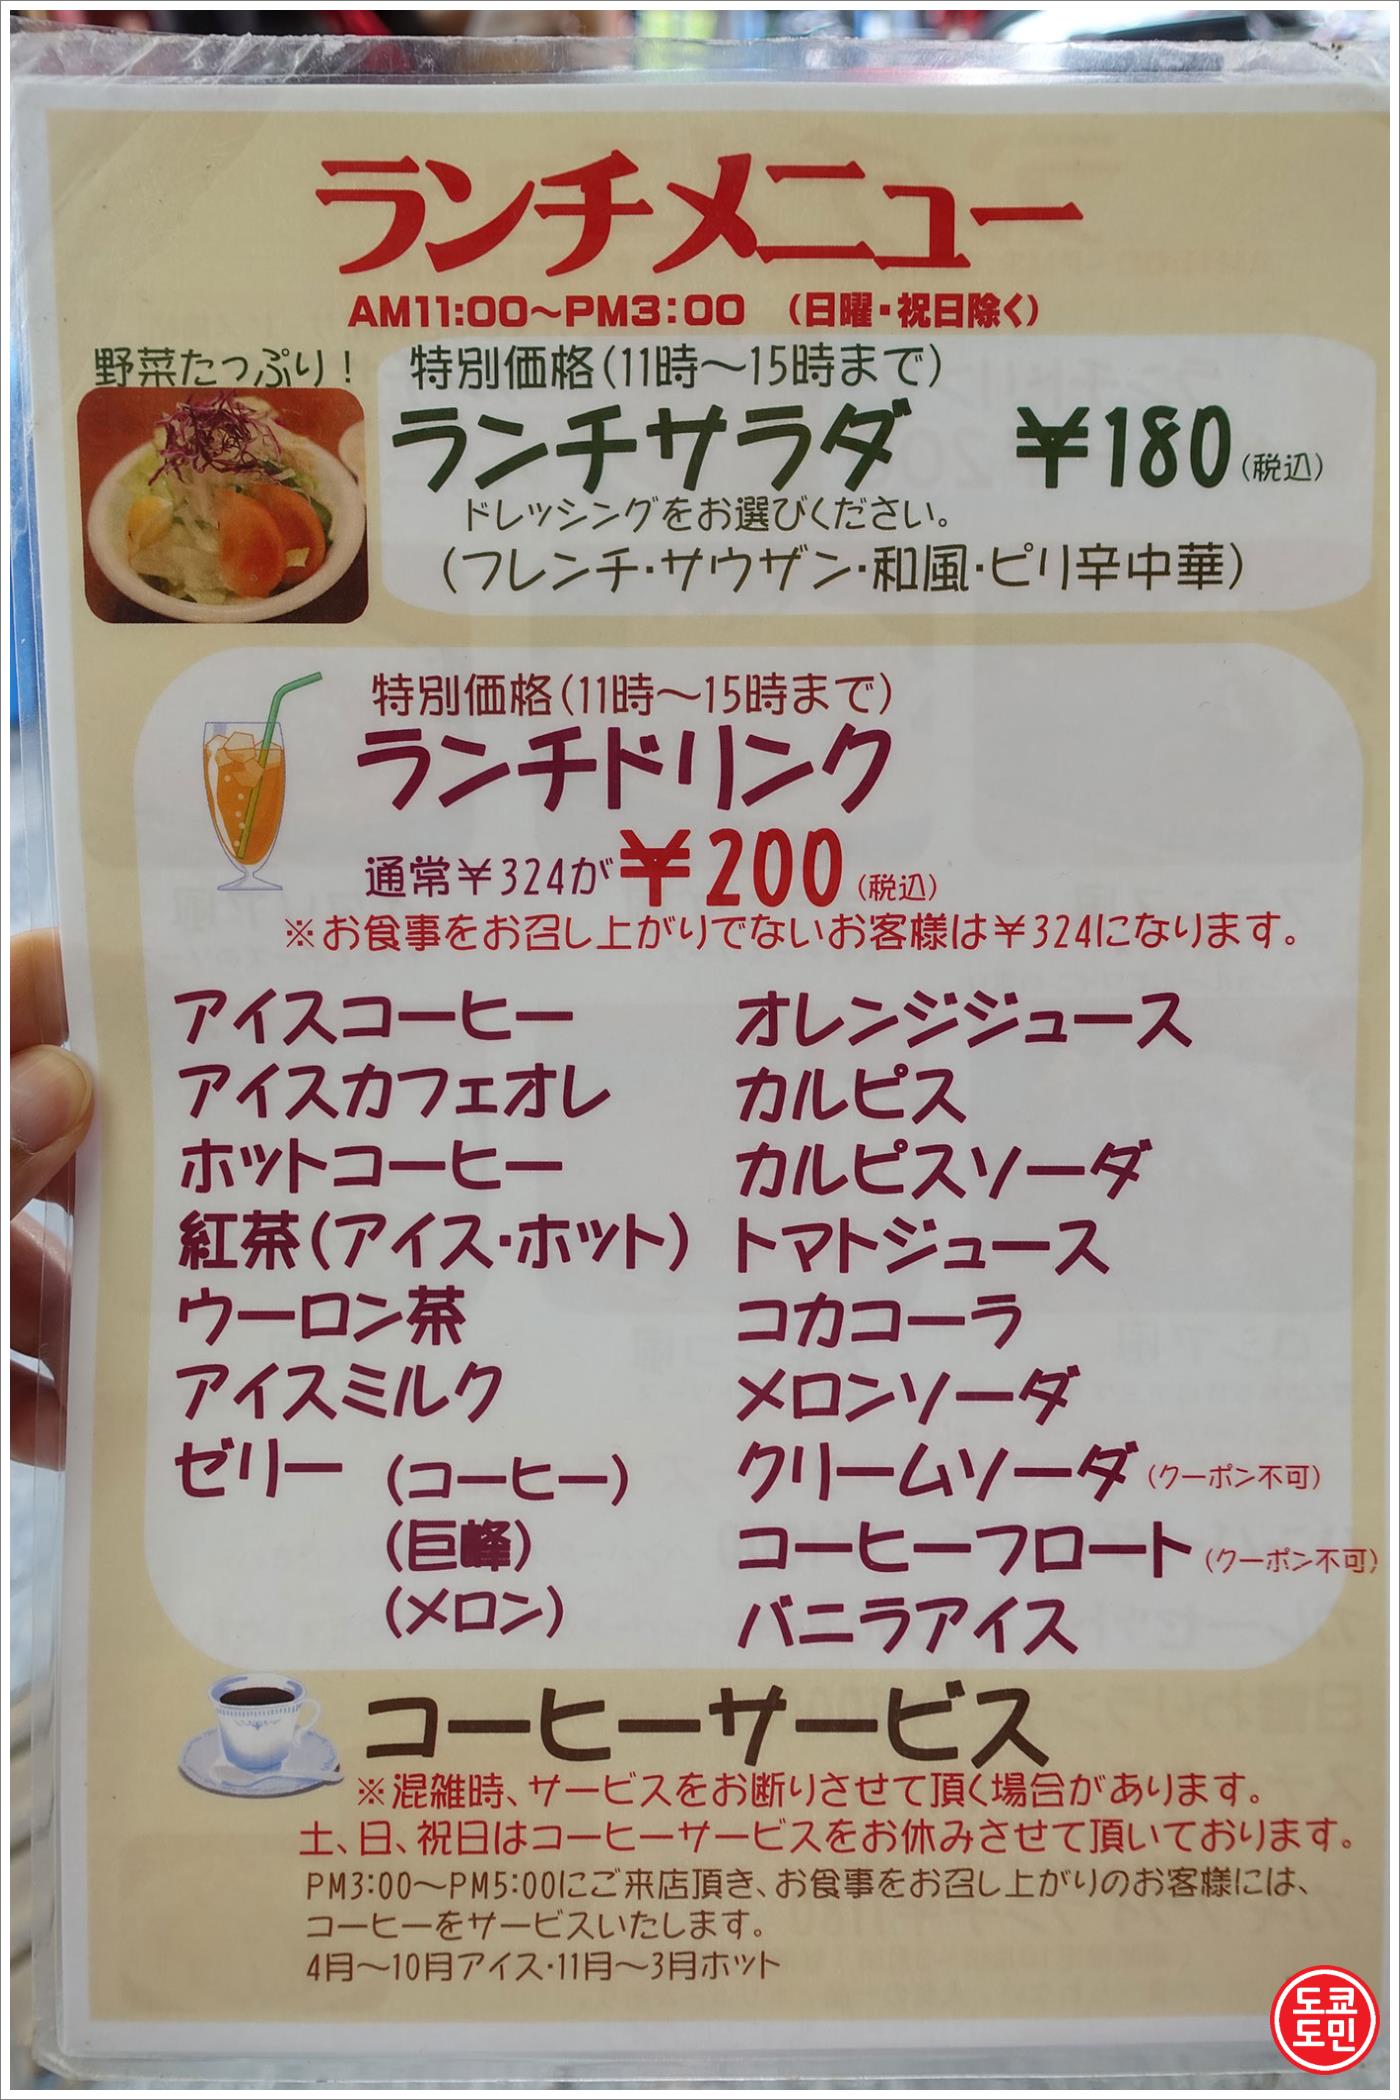 ランチメニュー
AM11:00～PM3:00 (日曜・祝日除く)
野菜たっぷり!
特別価格(11時～15時まで)
ランチサラダ ¥180(税込)
ドレッシングをお選びください。
(フレンチ・サウザン・和風・ピリ辛中華)
特別価格(11時～15時まで)
ランチドリンク
通常¥324が¥200(税込)
※お食事をお召し上がりでないお客様は¥324になります。
アイスコーヒー
アイスカフェオレ
ホットコーヒー
紅茶(アイス・ホット)
ウーロン茶
アイスミルク
ゼリー (コーヒー)
(巨峰)
(メロン)
オレンジジュース
カルピス
カルピスソーダ
トマトジュース
コカコーラ
メロンソーダ
クリームソーダ(クーポン不可)
コーヒーフロート(クーポン不可)
バニラアイス
コーヒーサービス
※混雑時、サービスをお断りさせて頂く場合があります。
土、日、祝日はコーヒーサービスをお休みさせて頂いております。
PM3:00～PM5:00にご来店頂き、お食事をお召し上がりのお客様には、
コーヒーをサービスいたします。
4月～10月アイス・11月～3月ホット
도쿄
도민